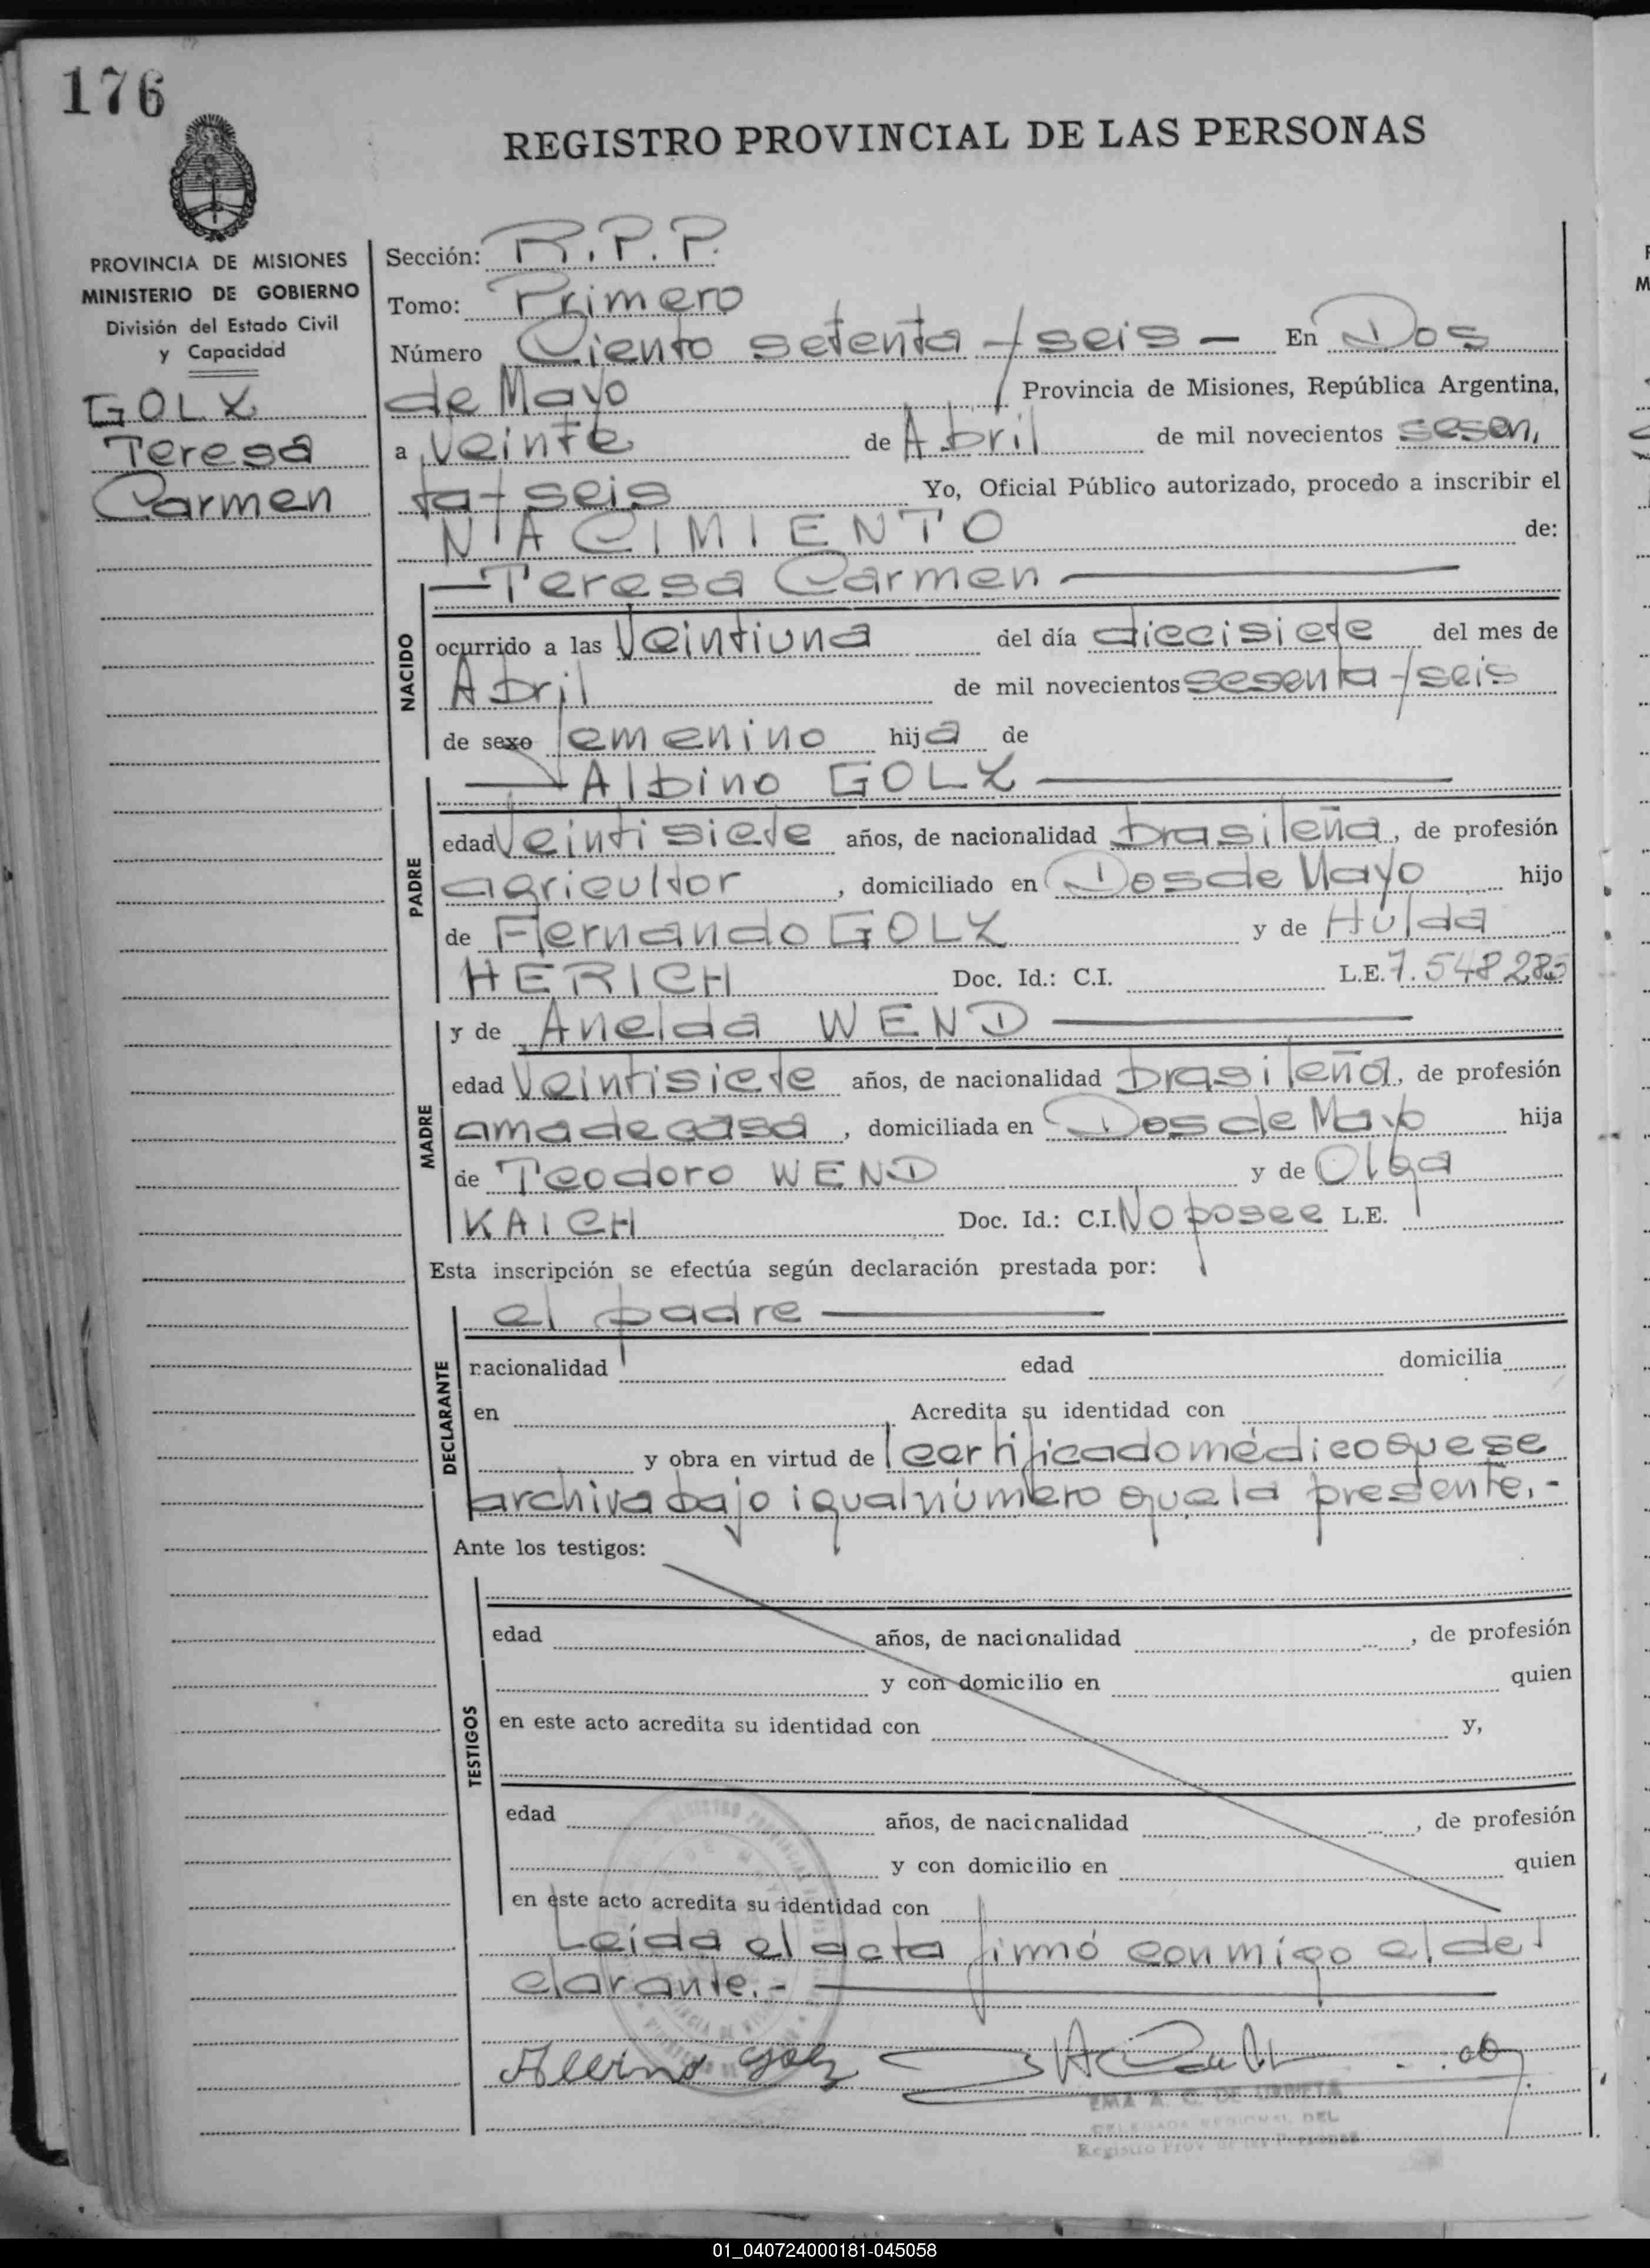 176
REGISTRO PROVINCIAL DE LAS PERSONAS
PROVINCIA DE MISIONES
MINISTERIO DE GOBIERNO
División del Estado Civil
y Capacidad
GOLZ
Teresa
Carmen
Sección: R.P.P.
Tomo: Primero
Número Ciento setenta y seis — En Dos
de Mayo Provincia de Misiones, República Argentina,
a Veinte de Abril de mil novecientos sesen,
ta y seis Yo, Oficial Público autorizado, procedo a inscribir el
NACIMIENTO de:
— Teresa Carmen —
NACIDO
ocurrido a las Veintiuna del día diecisiete del mes de
Abril de mil novecientos sesenta y seis
de sexo femenino hija de
— Albino GOLZ —
PADRE
edad Veintisiete años, de nacionalidad brasileña, de profesión
agricultor, domiciliado en Dos de Mayo hijo
de Fernando GOLZ y de Hulda
HERICH Doc. Id.: C.I. L.E. 7.548285
MADRE
y de Anelda WEND —
edad Veintisiete años, de nacionalidad brasileña, de profesión
ama de casa, domiciliada en Dos de Mayo hija
de Teodoro WEND y de Olga
KAICH Doc. Id.: C.I. No posee L.E.
Esta inscripción se efectúa según declaración prestada por:
DECLARANTE
el padre —
nacionalidad edad domicilia
en Acredita su identidad con
y obra en virtud de certificado médico que se
archiva bajo igual número que la presente.-
Ante los testigos:
TESTIGOS
edad años, de nacionalidad , de profesión
y con domicilio en quien
en este acto acredita su identidad con y,
edad años, de nacionalidad , de profesión
y con domicilio en quien
en este acto acredita su identidad con
Leída el acta firmó conmigo el de
clarante.- —
Albino Golz
EMA A. C. DE URRUTA
DELEGADA REGIONAL DEL
Registro Prov. de las Personas
01_040724000181-045058